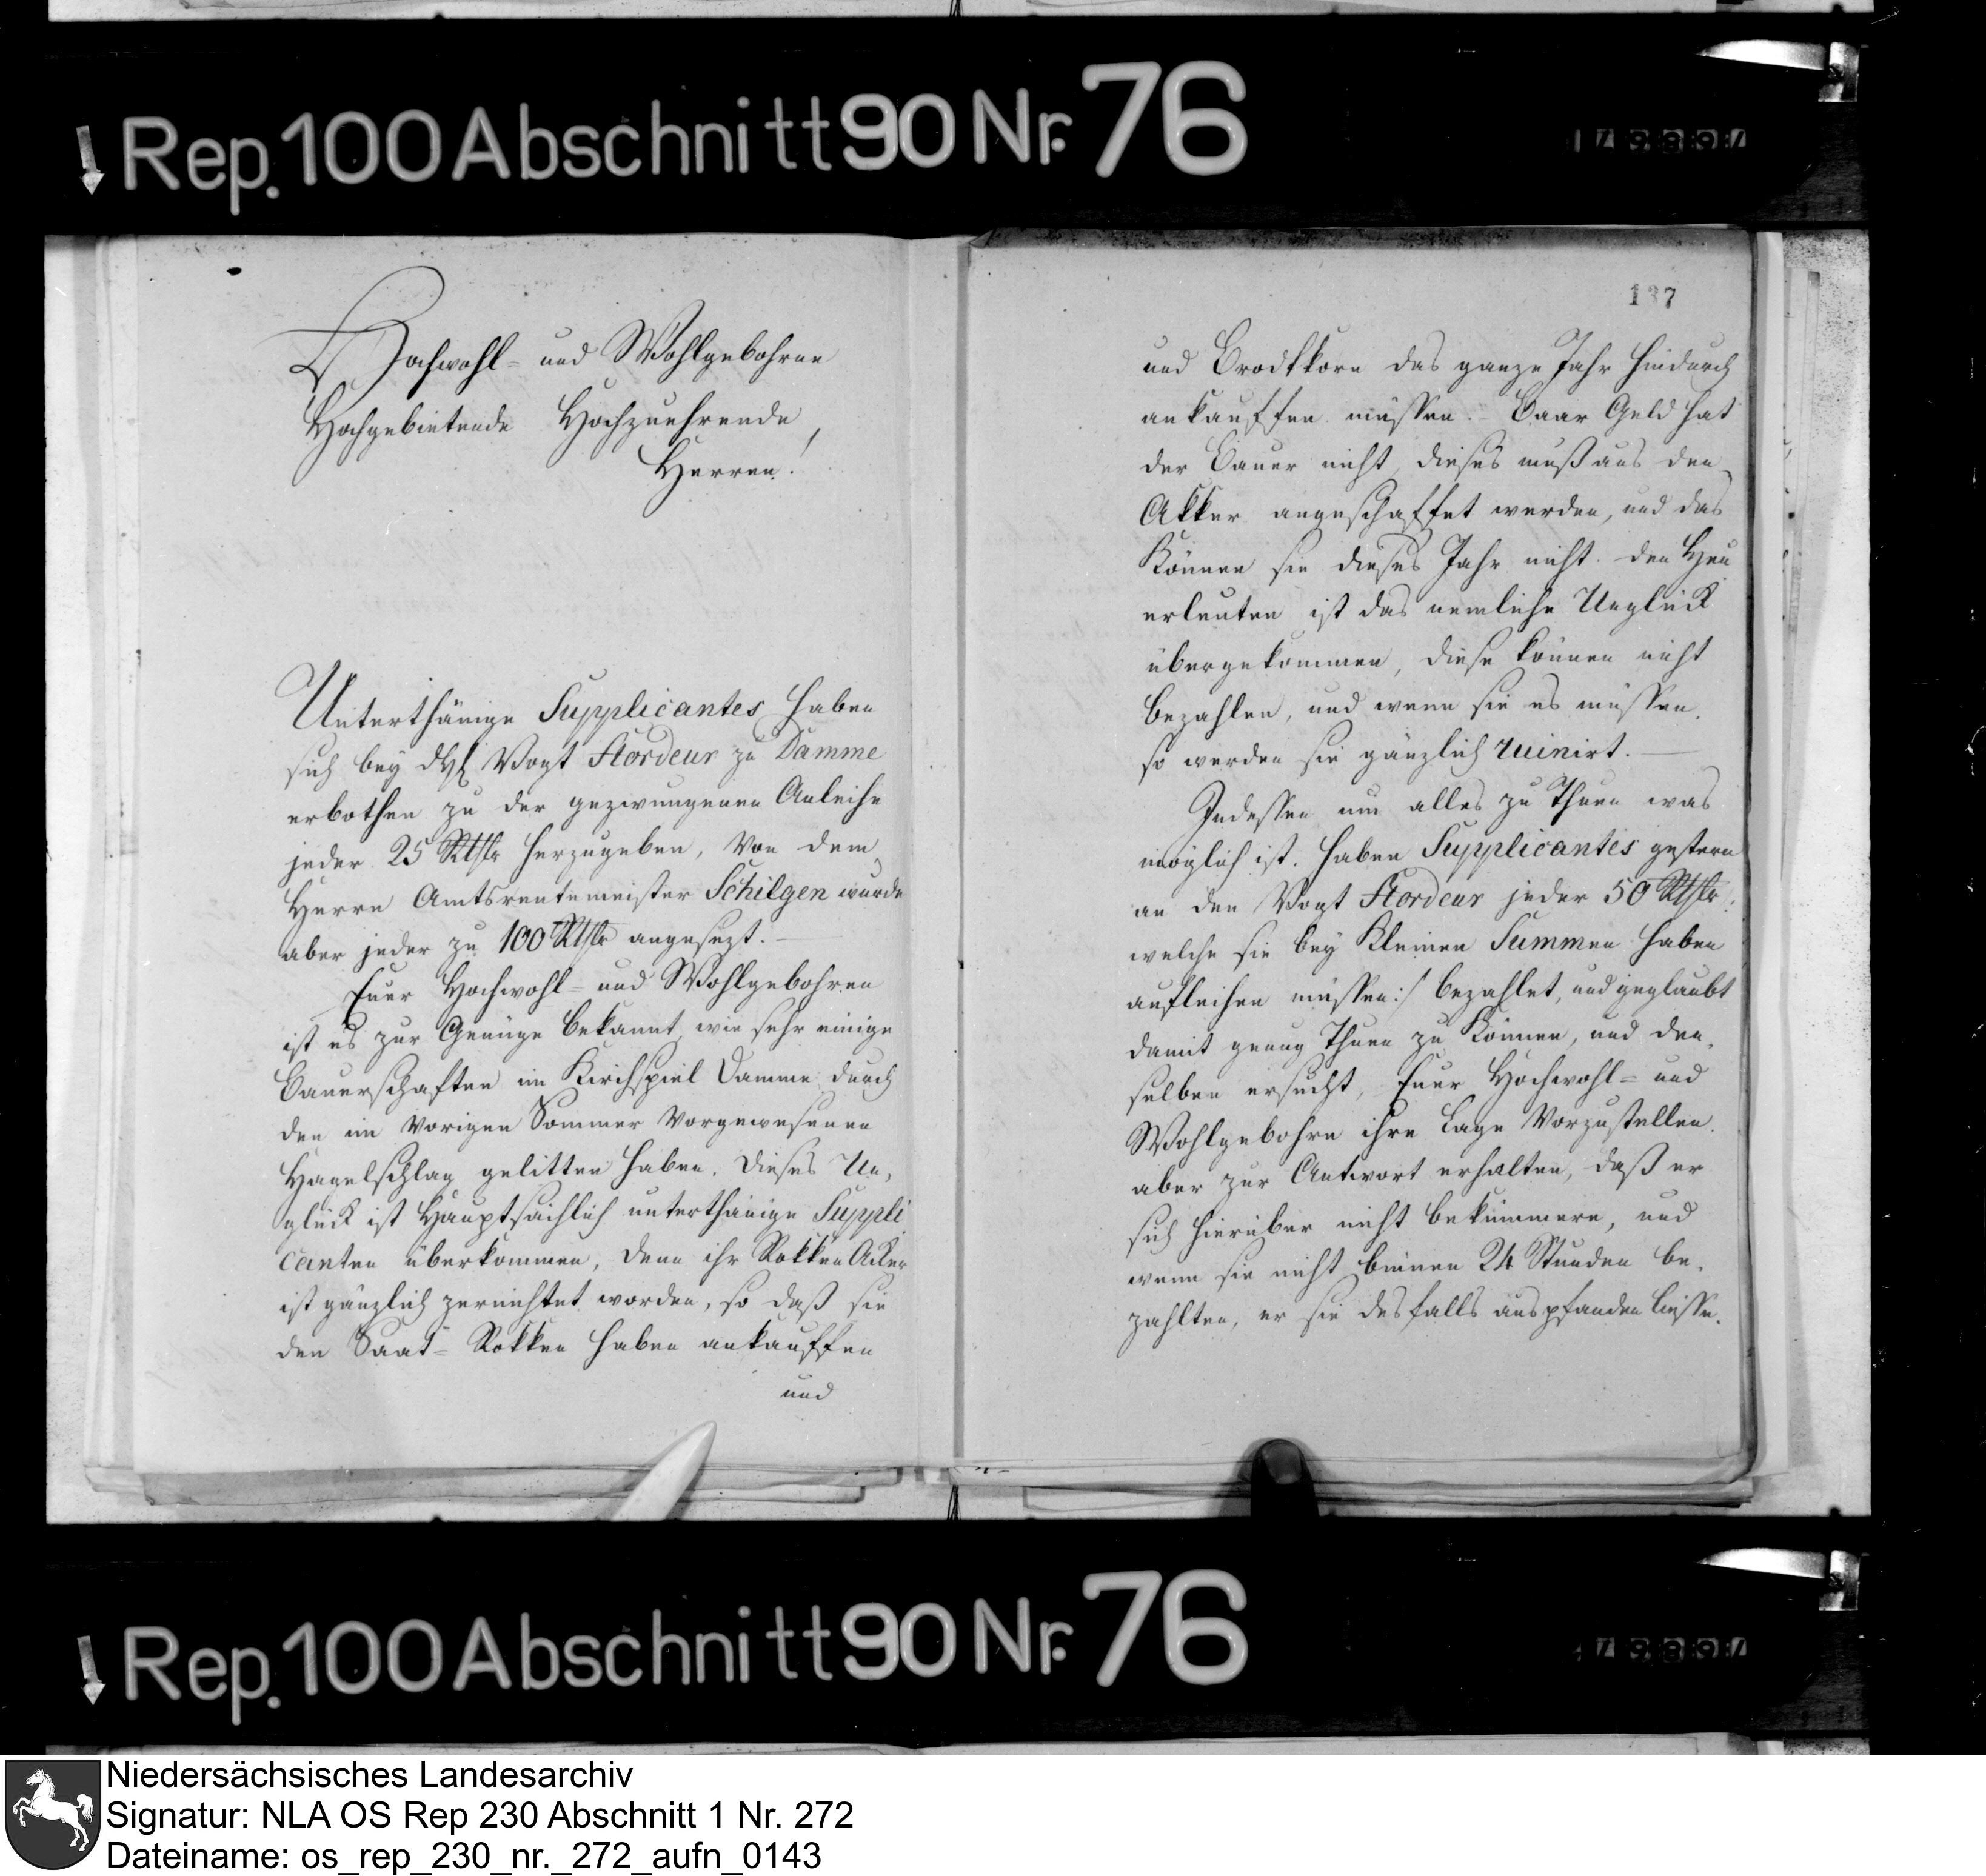 Rep. 100 Abschnitt 90 Nr. 76
Hochwohl- und Wohlgebohrne
Hochgebietende Hochzuehrende,
Herren!
Unterthänige Supplicantes haben
sich bey dH Vogt Stordeur zu Damme
erbothen zu der gezwungenen Anleihe
jeder 25 Rthlr herzugeben, Von dem
Herrn Amtsrentemeister Schilgen wurde
aber jeder zu 100 Rthlr angesezt. —
Euer Hochwohl- und Wohlgebohren
ist es zur Genüge bekannt, wie sehr einige
Bauerschaften im Kirchspiel Damme durch
den im Vorigen Sommer Vorgewesenen
Hagelschlag gelitten haben. Dieses Un,
glück ist Hauptsächlich unterthänige Suppli
canten überkommen, denn ihr Rokken Acker
ist gänzlich zernichtet worden, so daß sie
den Saat- Rokken haben ankauffen
und
137
und Brodtkorn das ganze Jahr hindurch
ankauffen müssen. - Baar Geld hat
der Bauer nicht, dieses muß aus den
Akker angeschaffet werden, und das
Können sie dieses Jahr nicht. den Heu
erleuten ist das nemliche Unglück
übergekommen, diese können nicht
bezahlen, und wenn sie es müssen,
so werden sie gänzlich ruinirt. —
Indessen um alles zu Thuen was
möglich ist. haben Supplicantes gestern
an den Vogt Stordeur jeder 50 Rthlr:
welche sie bey Kleinen Summen haben
aufleihen müssen:/ bezahlet, und geglaubt
damit genug Thuen zu Können, und den,
selben ersucht, Euer Hochwohl- und
Wohlgebohrn ihre Lage Vorzustellen.
aber zur Antwort erhalten, daß er
sich hierüber nicht bekümmere, und
wenn sie nicht binnen 24 Stunden be,
zahlten, er sie desfalls auspfanden liesse.
Rep. 100 Abschnitt 90 Nr. 76
Niedersächsisches Landesarchiv
Signatur: NLA OS Rep 230 Abschnitt 1 Nr. 272
Dateiname: os_rep_230_nr._272_aufn_0143